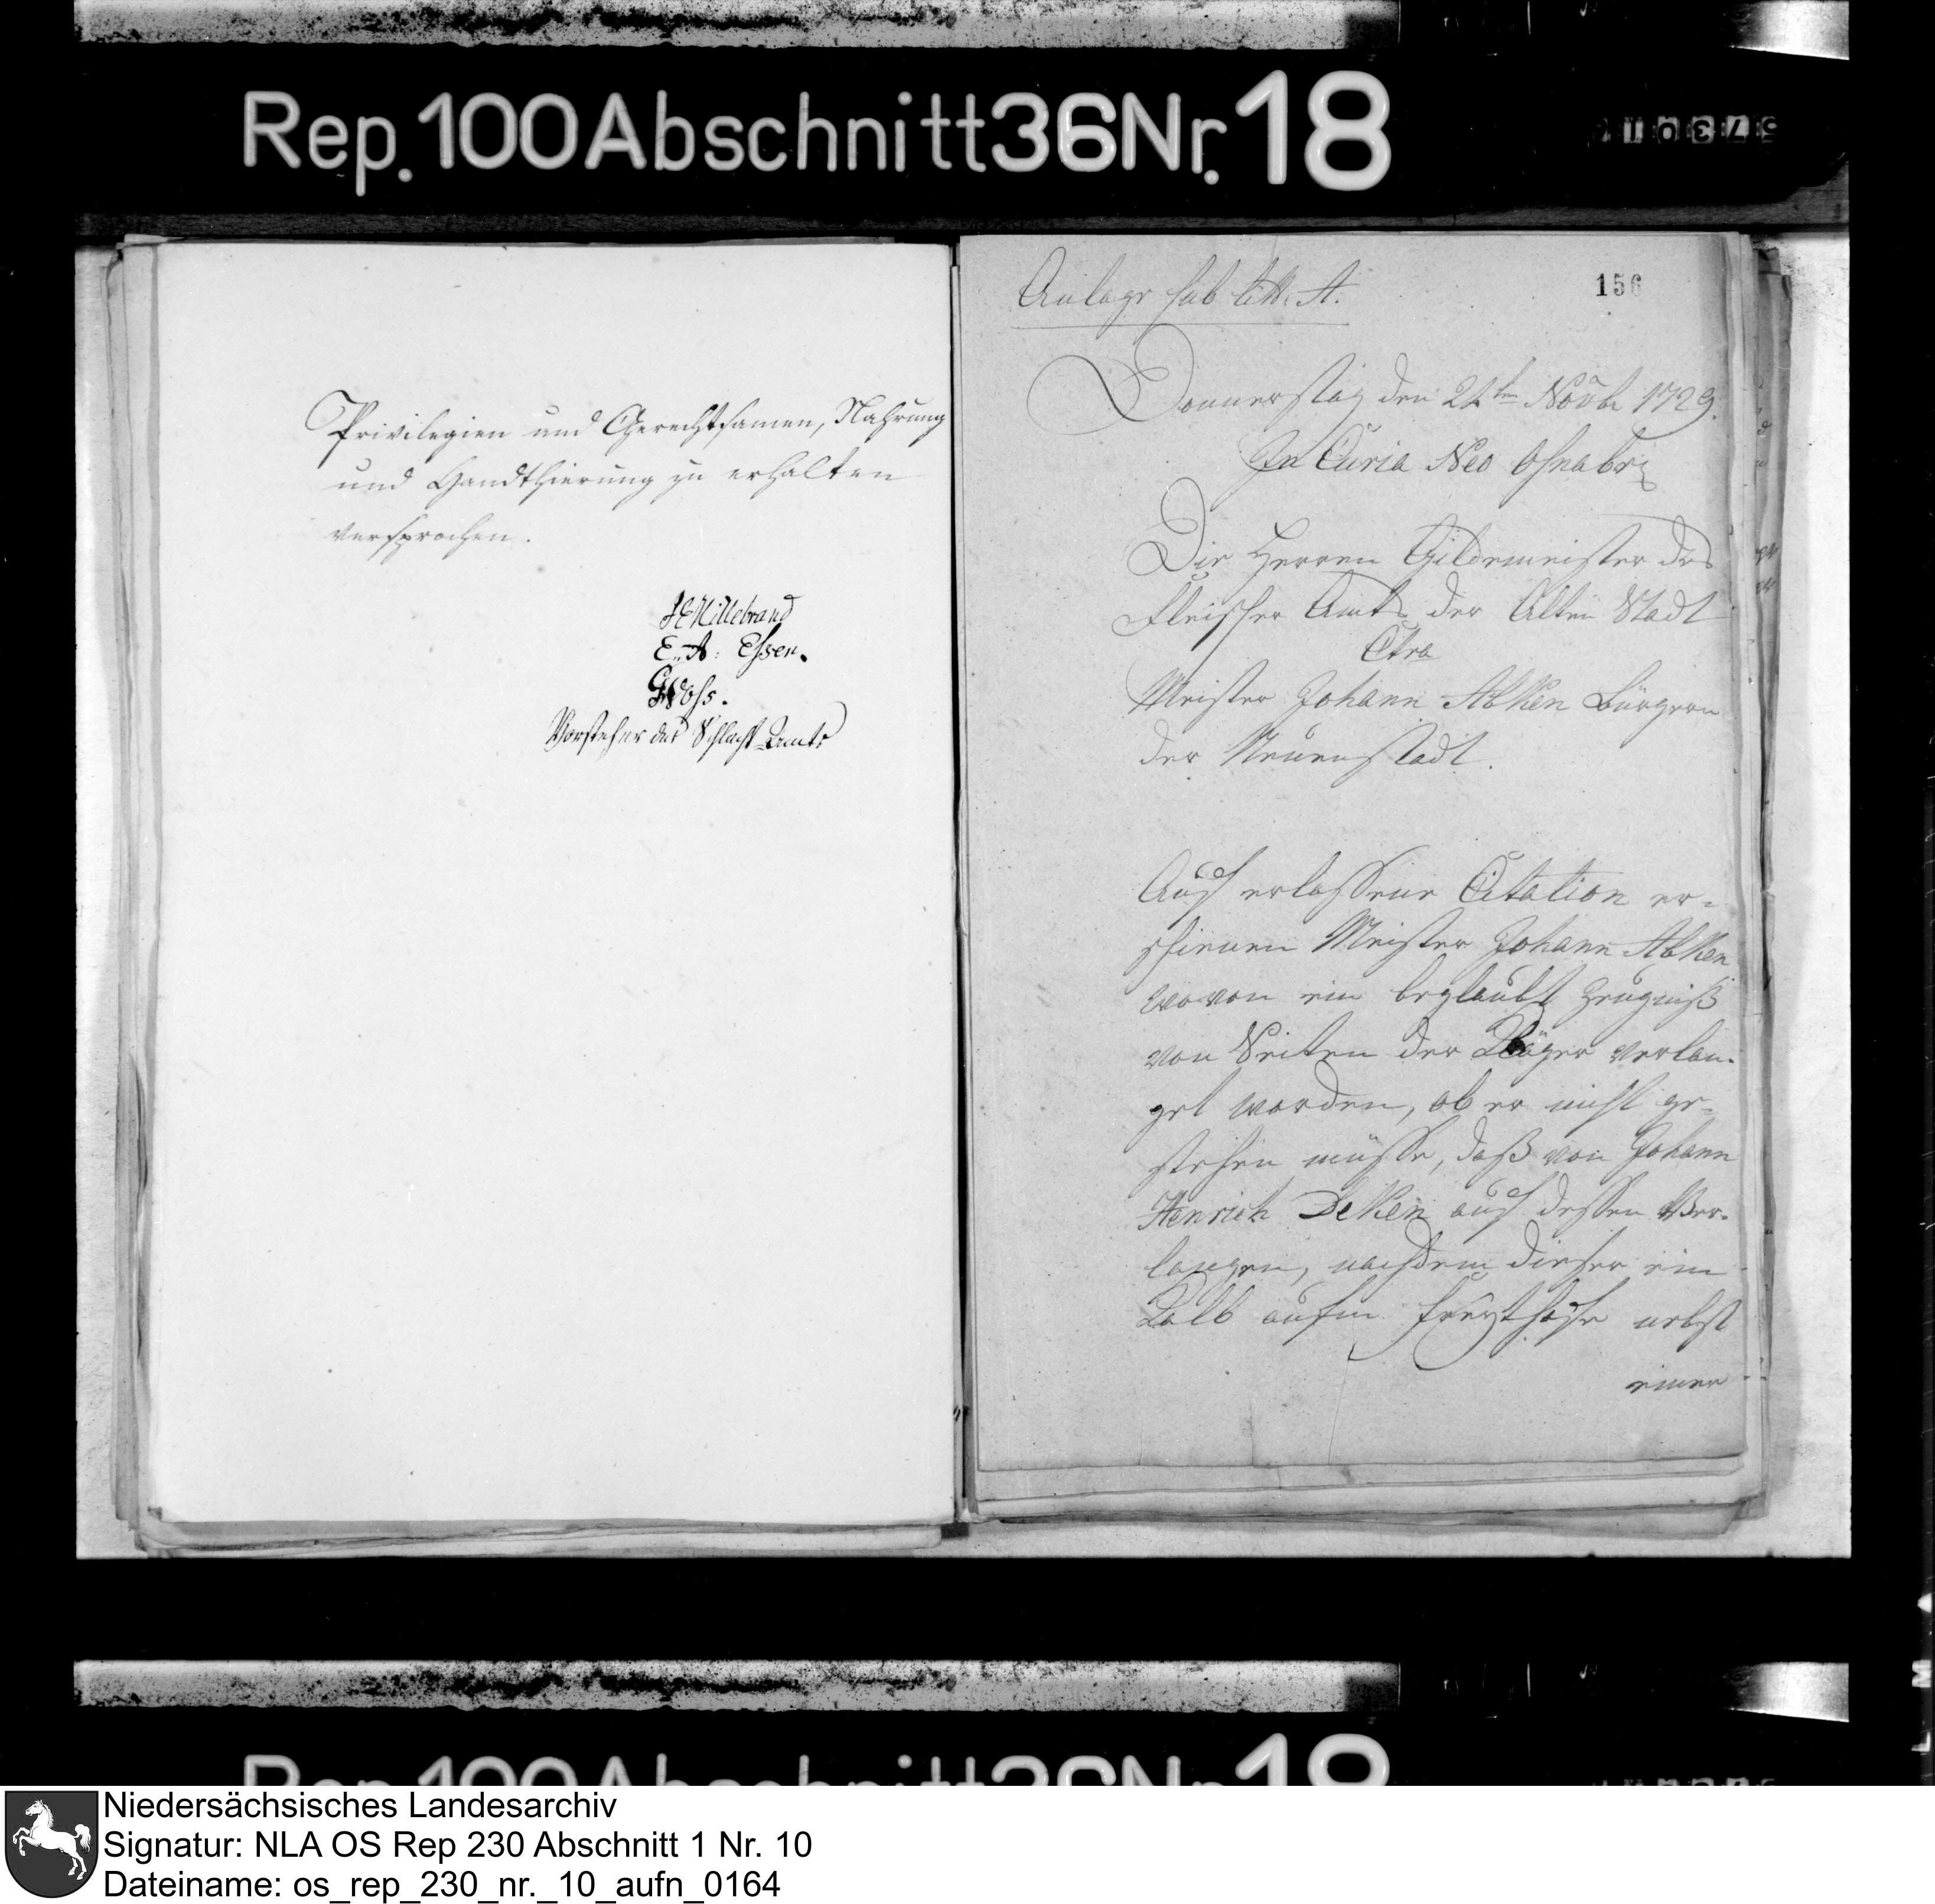 Rep. 100 Abschnitt 36 Nr. 18
Privilegien und Gerechtsamen, Nahrung
und Handthierung zu erhalten
versprochen.
Hillebrand
E. A. Essen.
Voss.
Vorsteher des Schlacht-Amts
156
Anlage sub litt. A.
Donnerstag den 24ten Novbr 1729.
In Curia Neo Osnabr
Die Herren Gildemeister des
Fleischer Amts der Alten Stadt
Ctra
Meister Johann Abken Bürgern
der Neuenstadt.
Auf erlassene Citation er-
schienen Meister Johann Abken
wovon ein beglaubt Zeugniß
von Seiten der Kläger verlan-
get worden, ob er nicht ge-
stehen müsse, daß von Johann
Henrich Delken auf dessen Ver-
langen, nachdem dieser ein
Kalb aufm Freythofe nebst
einer
Niedersächsisches Landesarchiv
Signatur: NLA OS Rep 230 Abschnitt 1 Nr. 10
Dateiname: os_rep_230_nr._10_aufn_0164